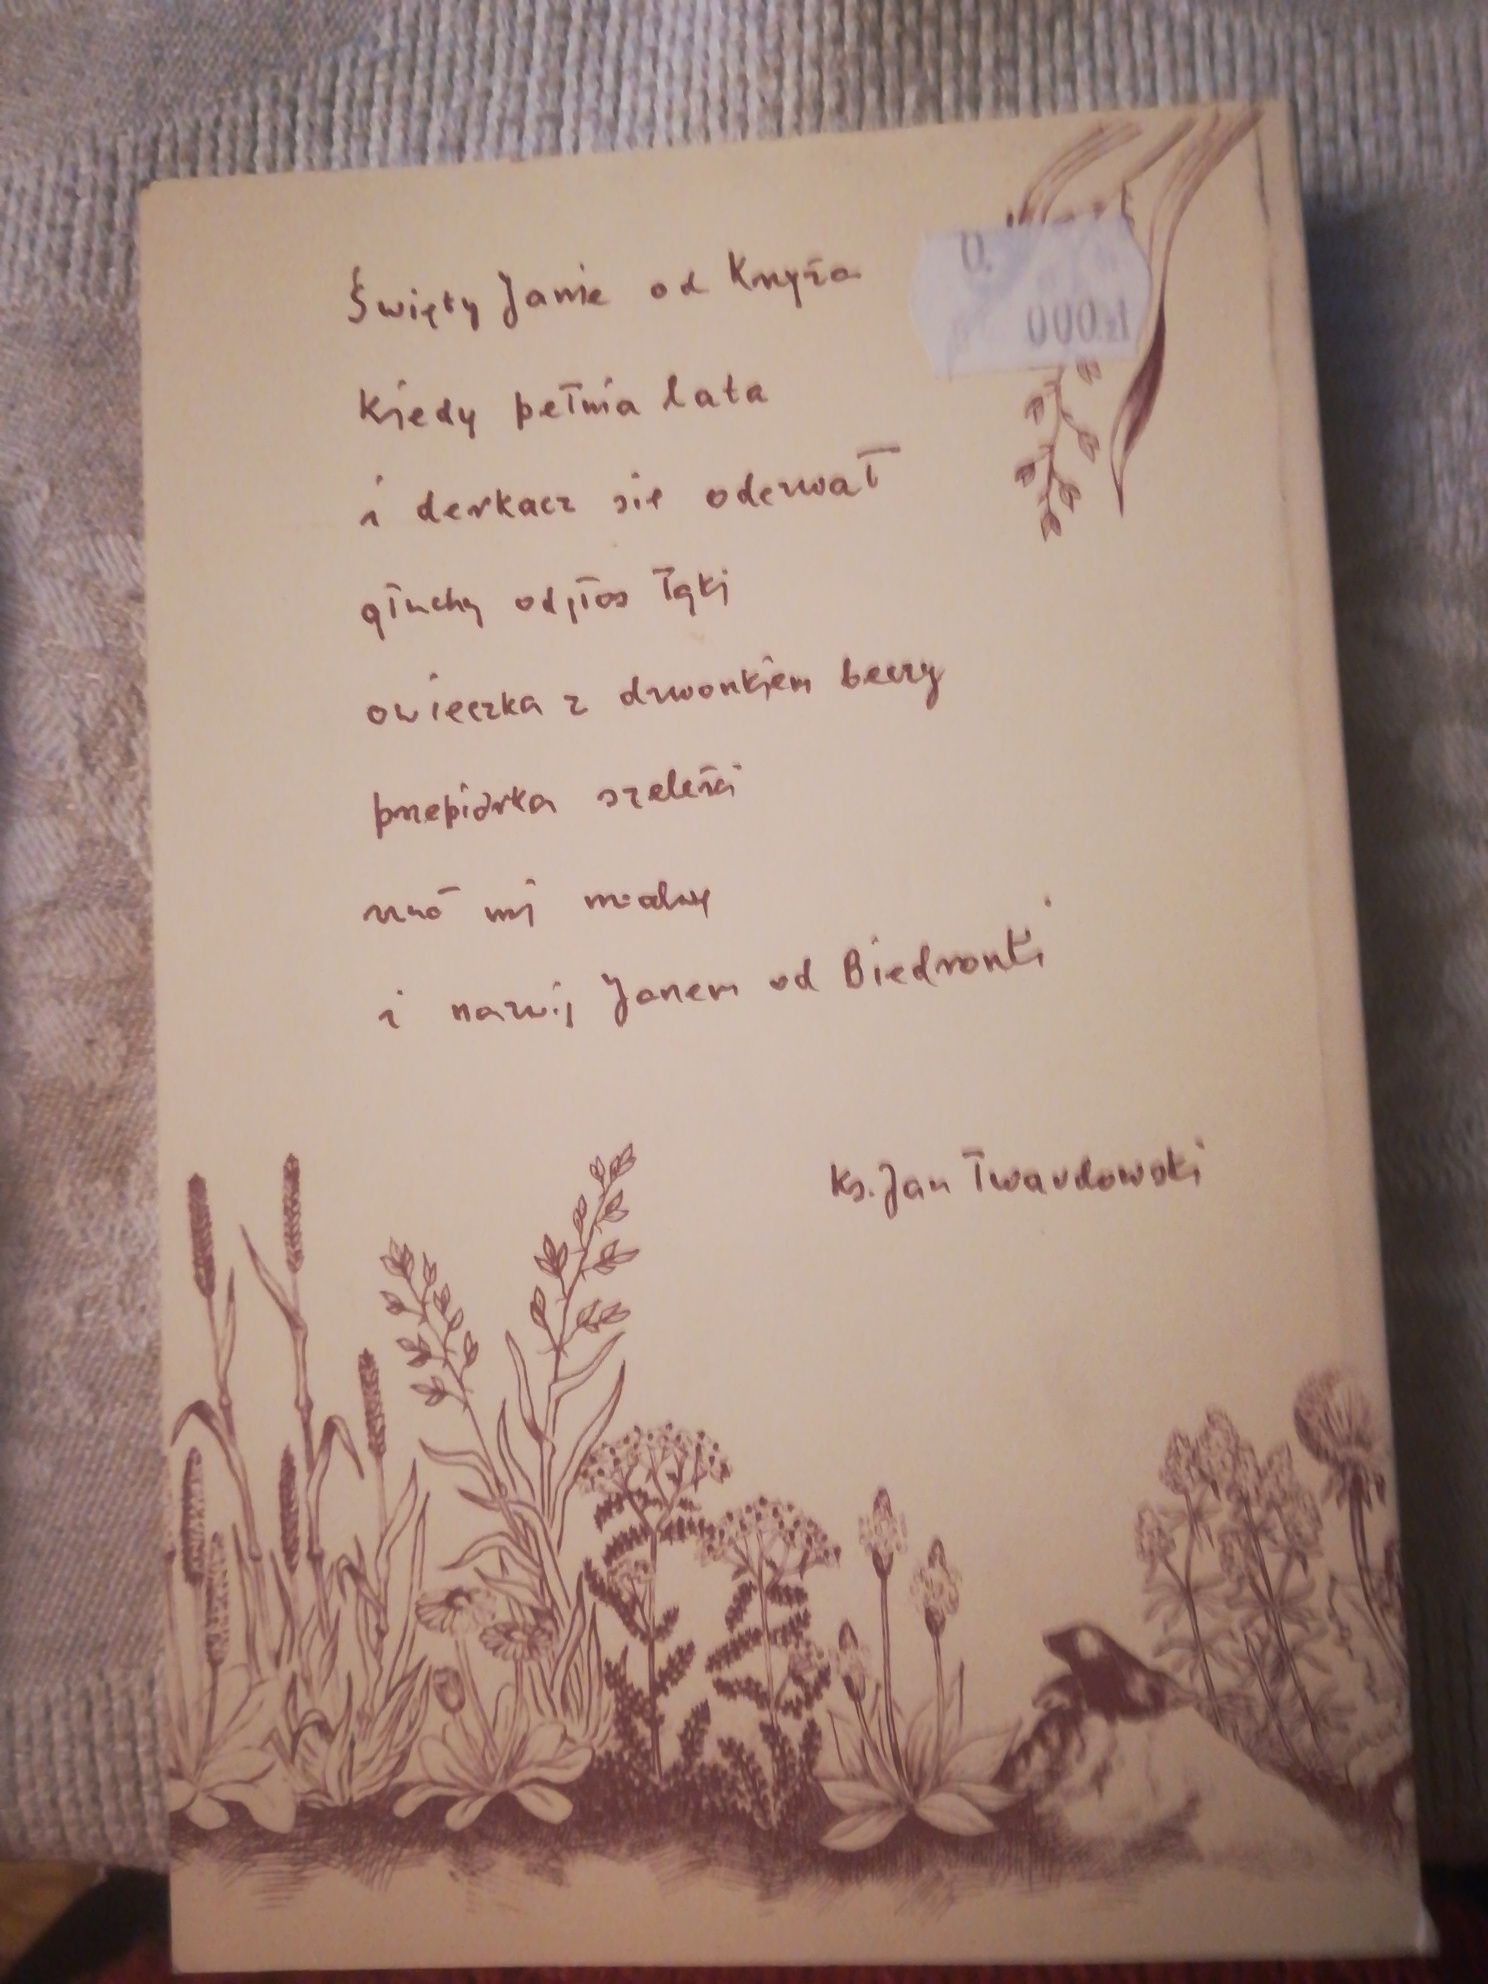 Święty Janie od Krzyża
kiedy pełnia lata
i derkacz się odezwał
głuchy odgłos łąki
owieczka z dzwonkiem beczy
przepiórka szeleści
mi
i nazwij Janem od Biedronki
ks. Jan Twardowski
0.
000 zł